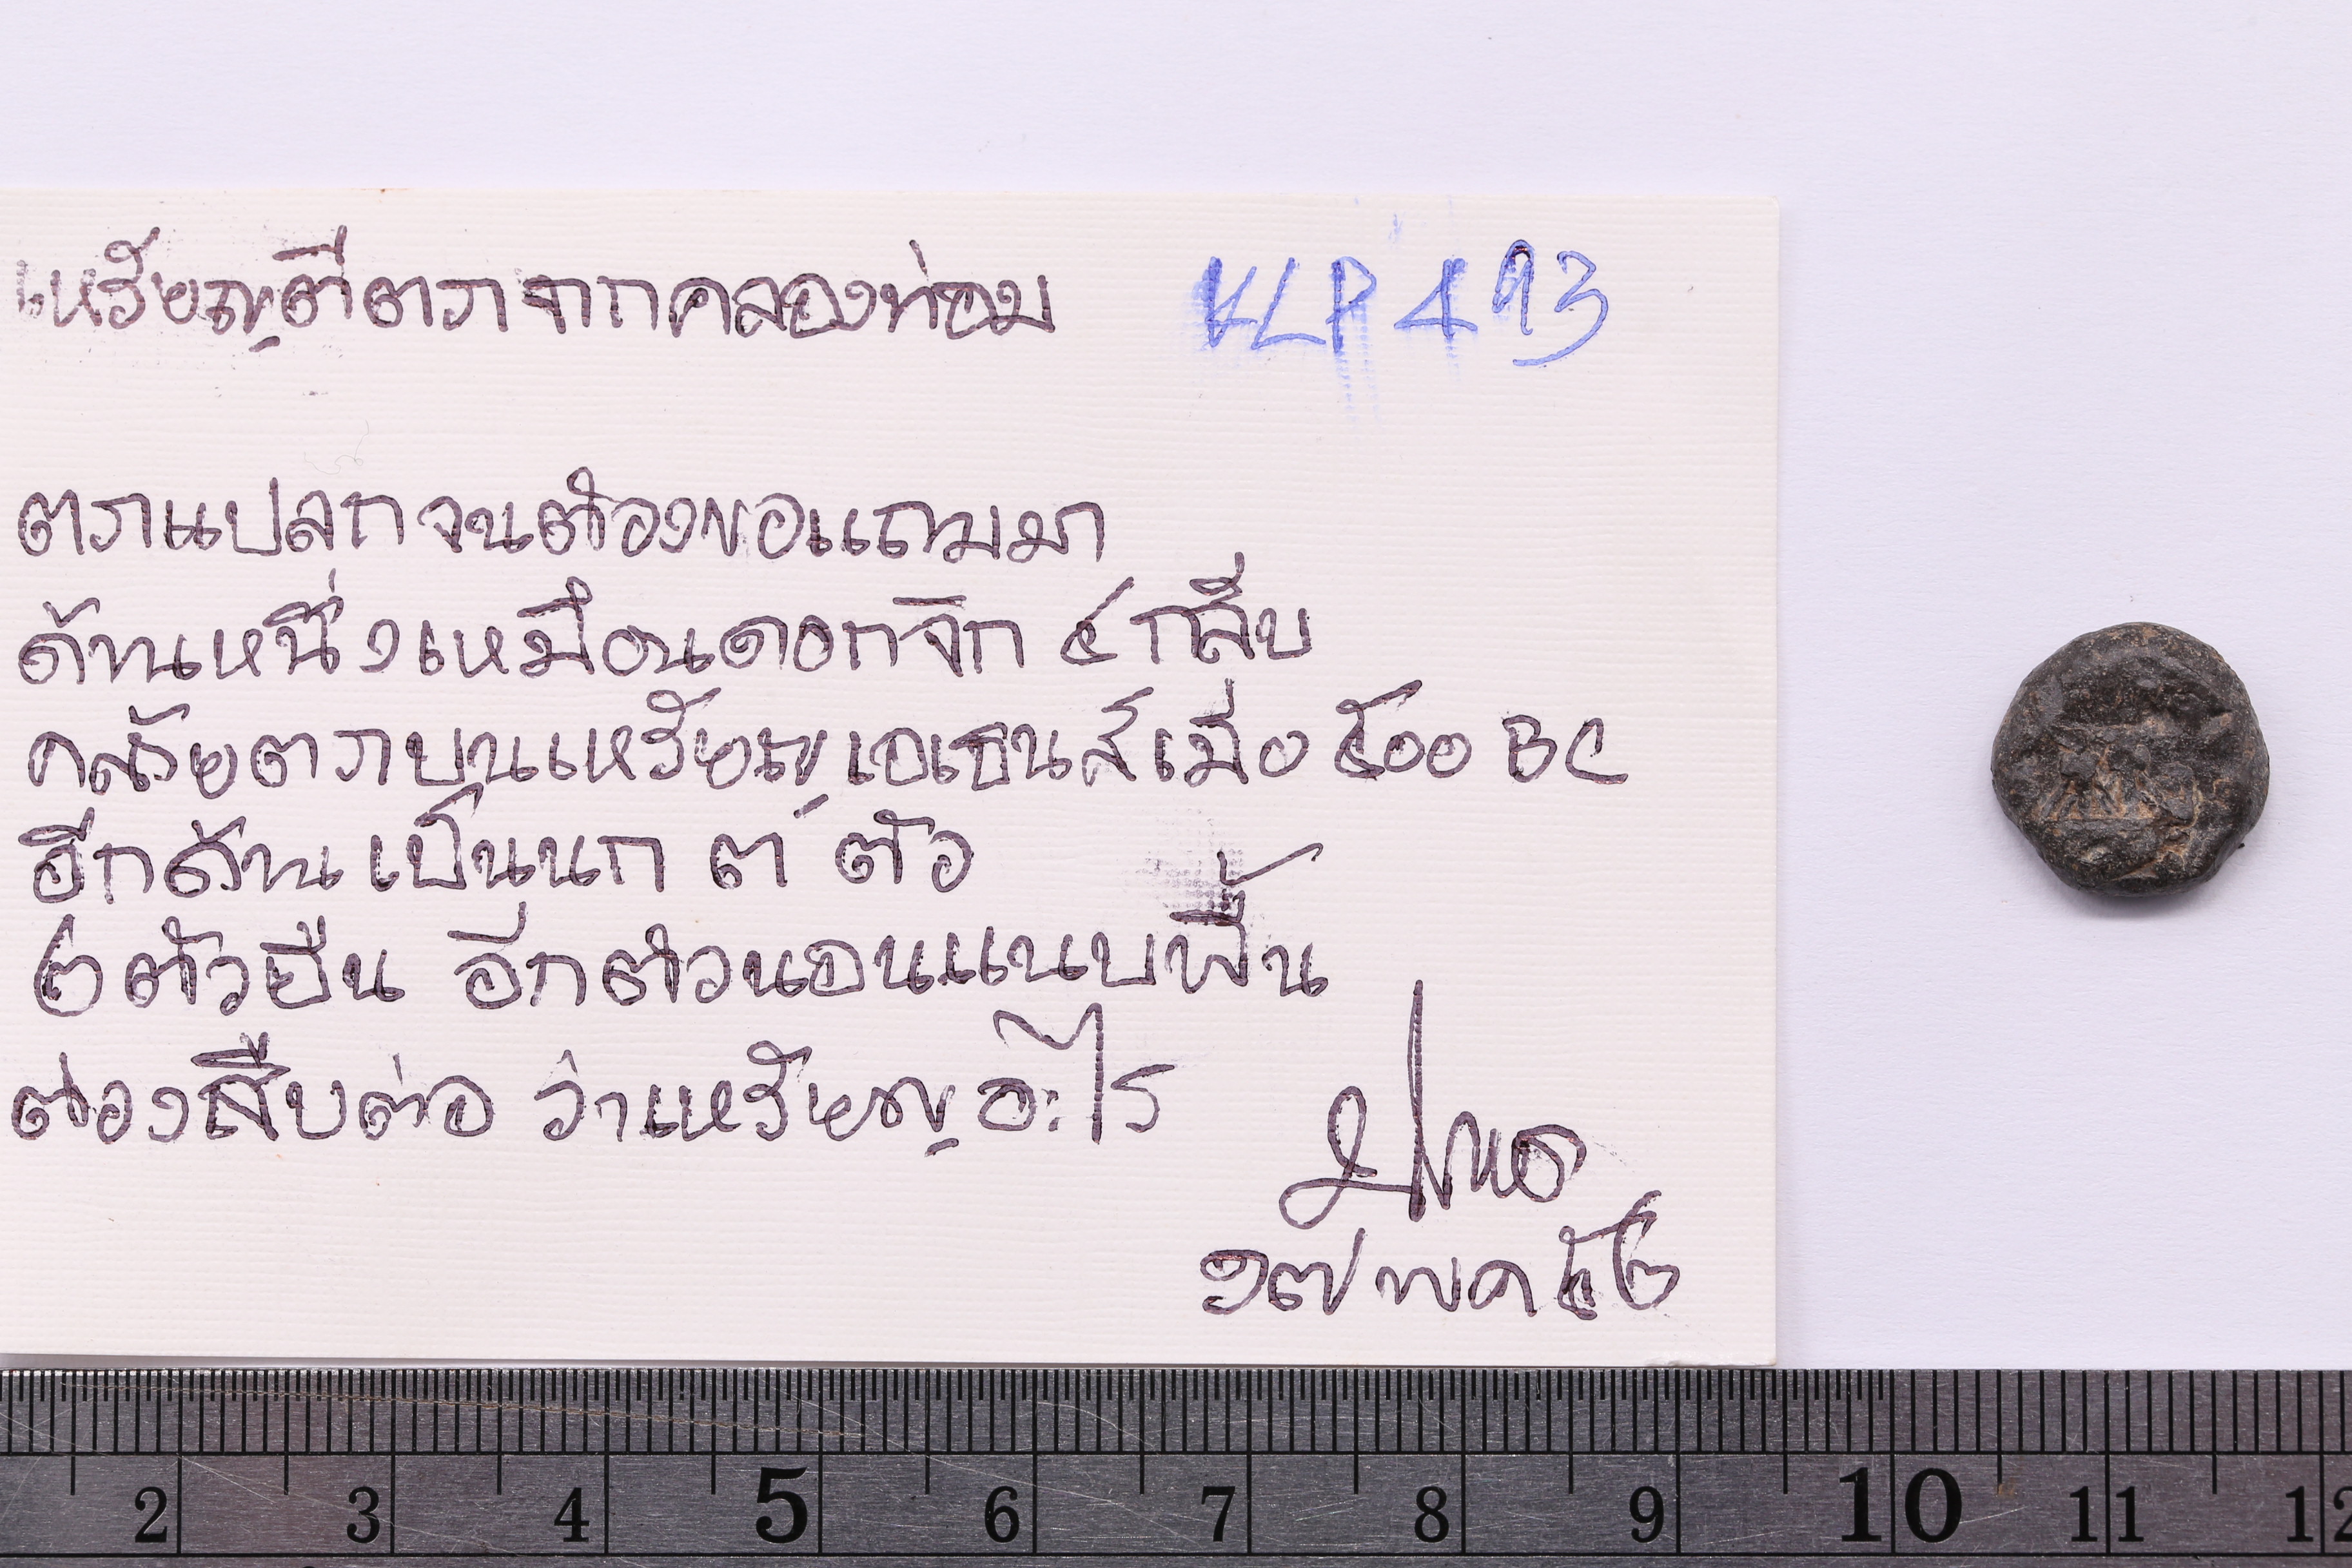 เหรียญตีตราจากคลองท่อม KLP 493
ตราแปลก จนต้องขอแถมมา
ด้านหนึ่งเหมือนดอกจิก ๔ กลีบ
คล้ายตราบนเหรียญเอเธนส์เมื่อ ๕๐๐ BC
อีกด้าน เป็นนก ๓ ตัว
๒ ตัวยืน อีกตัวนอนแนบพื้น
ต้องสืบต่อ ว่าเหรียญอะไร
๑๗ พค ๕๒
2 3 4 5 6 7 8 9 10 11 12